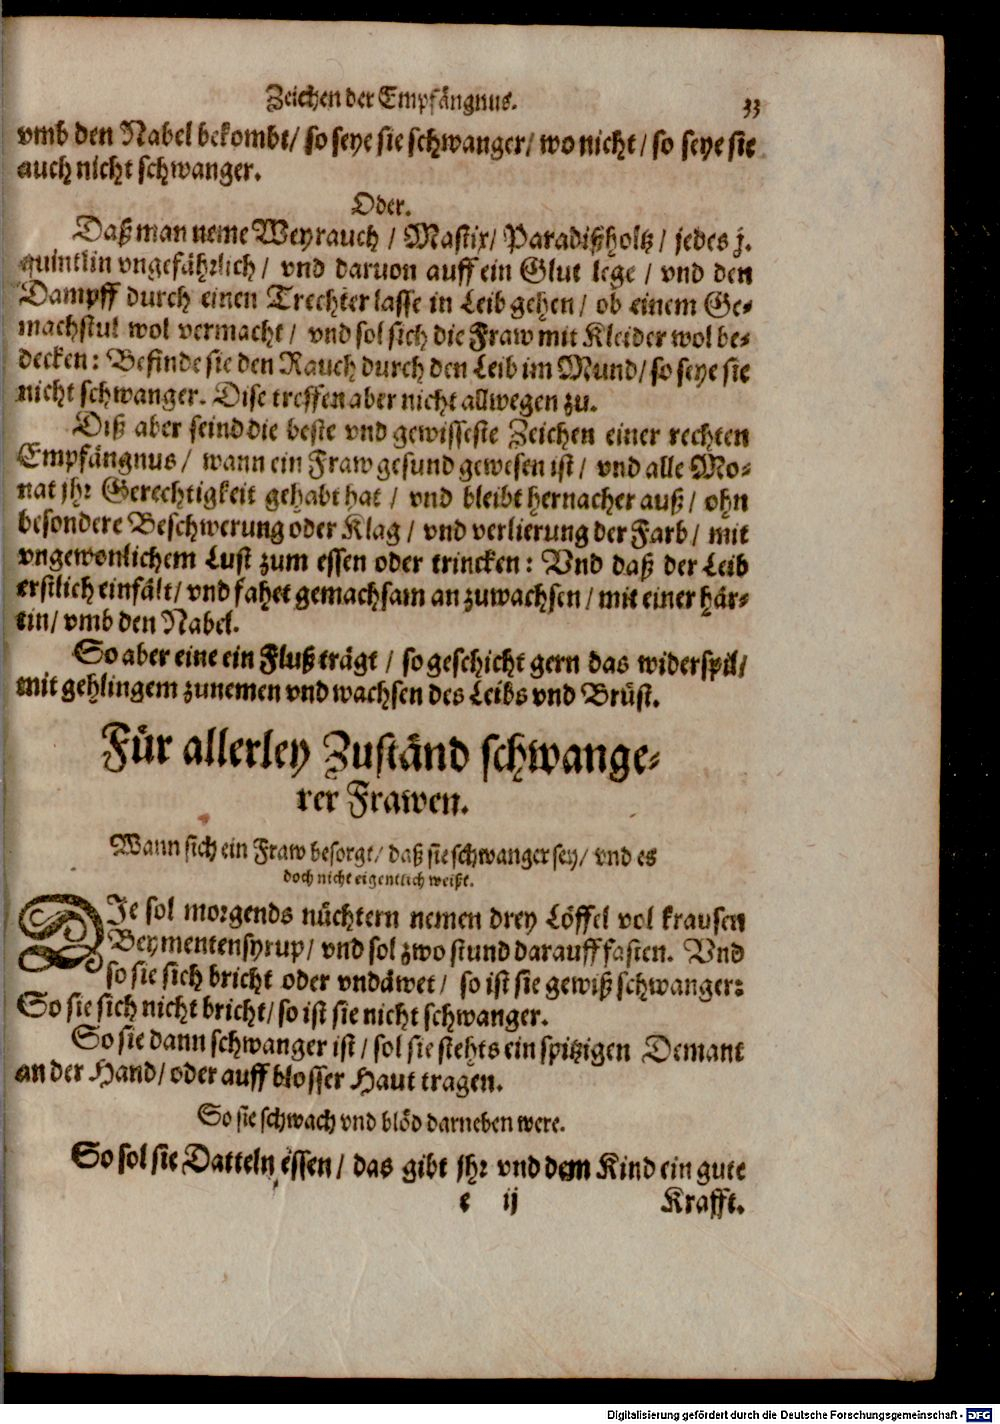 Zeichen der Empfängnus. 33
vmb den Nabel bekombt/ so seye sie schwanger/ wo nicht/ so seye sie
auch nicht schwanger.
Oder.
Daß man neme Weyrauch / Mastix/ Paradißholtz / jedes j.
quintlin vngefährlich / vnd daruon auff ein Glut lege / vnd den
Dampff durch einen Trechter lasse in Leib gehen / ob einem Ge-
machstul wol vermacht / vnd sol sich die Fraw mit Kleider wol be-
decken: Befinde sie den Rauch durch den Leib im Mund/ so seye sie
nicht schwanger. Dise treffen aber nicht allwegen zu.
Diß aber seind die beste vnd gewisseste Zeichen einer rechten
Empfängnus / wann ein Fraw gesund gewesen ist / vnd alle Mo-
nat jhr Gerechtigkeit gehabt hat / vnd bleibt hernacher auß / ohn
besondere Beschwerung oder Klag / vnd verlierung der Farb / mit
vngewonlichem Lust zum essen oder trincken: Vnd daß der Leib
erstlich einfält / vnd fahet gemachsam an zuwachsen / mit einer här-
tin / vmb den Nabel.
So aber eine ein Fluß trägt / so geschicht gern das widerspil/
mit gehlingem zunemen vnd wachsen des Leibs vnd Brüst.
Für allerley Zuständ schwange-
rer Frawen.
Wann sich ein Fraw besorgt/ daß sie schwanger sey/ vnd es
doch nicht eigentlich weißt.
DIe sol morgends nüchtern nemen drey Löffel vol krausen
Beymentensyrup/ vnd sol zwo stund darauff fasten. Vnd
so sie sich bricht oder vndäwet / so ist sie gewiß schwanger:
So sie sich nicht bricht/ so ist sie nicht schwanger.
So sie dann schwanger ist / sol sie stehts ein spitzigen Demant
an der Hand/ oder auff blosser Haut tragen.
So sie schwach vnd blöd darneben were.
So sol sie Datteln essen / das gibt jhr vnd dem Kind ein gute
e ij Krafft.
Digitalisierung gefördert durch die Deutsche Forschungsgemeinschaft - DFG